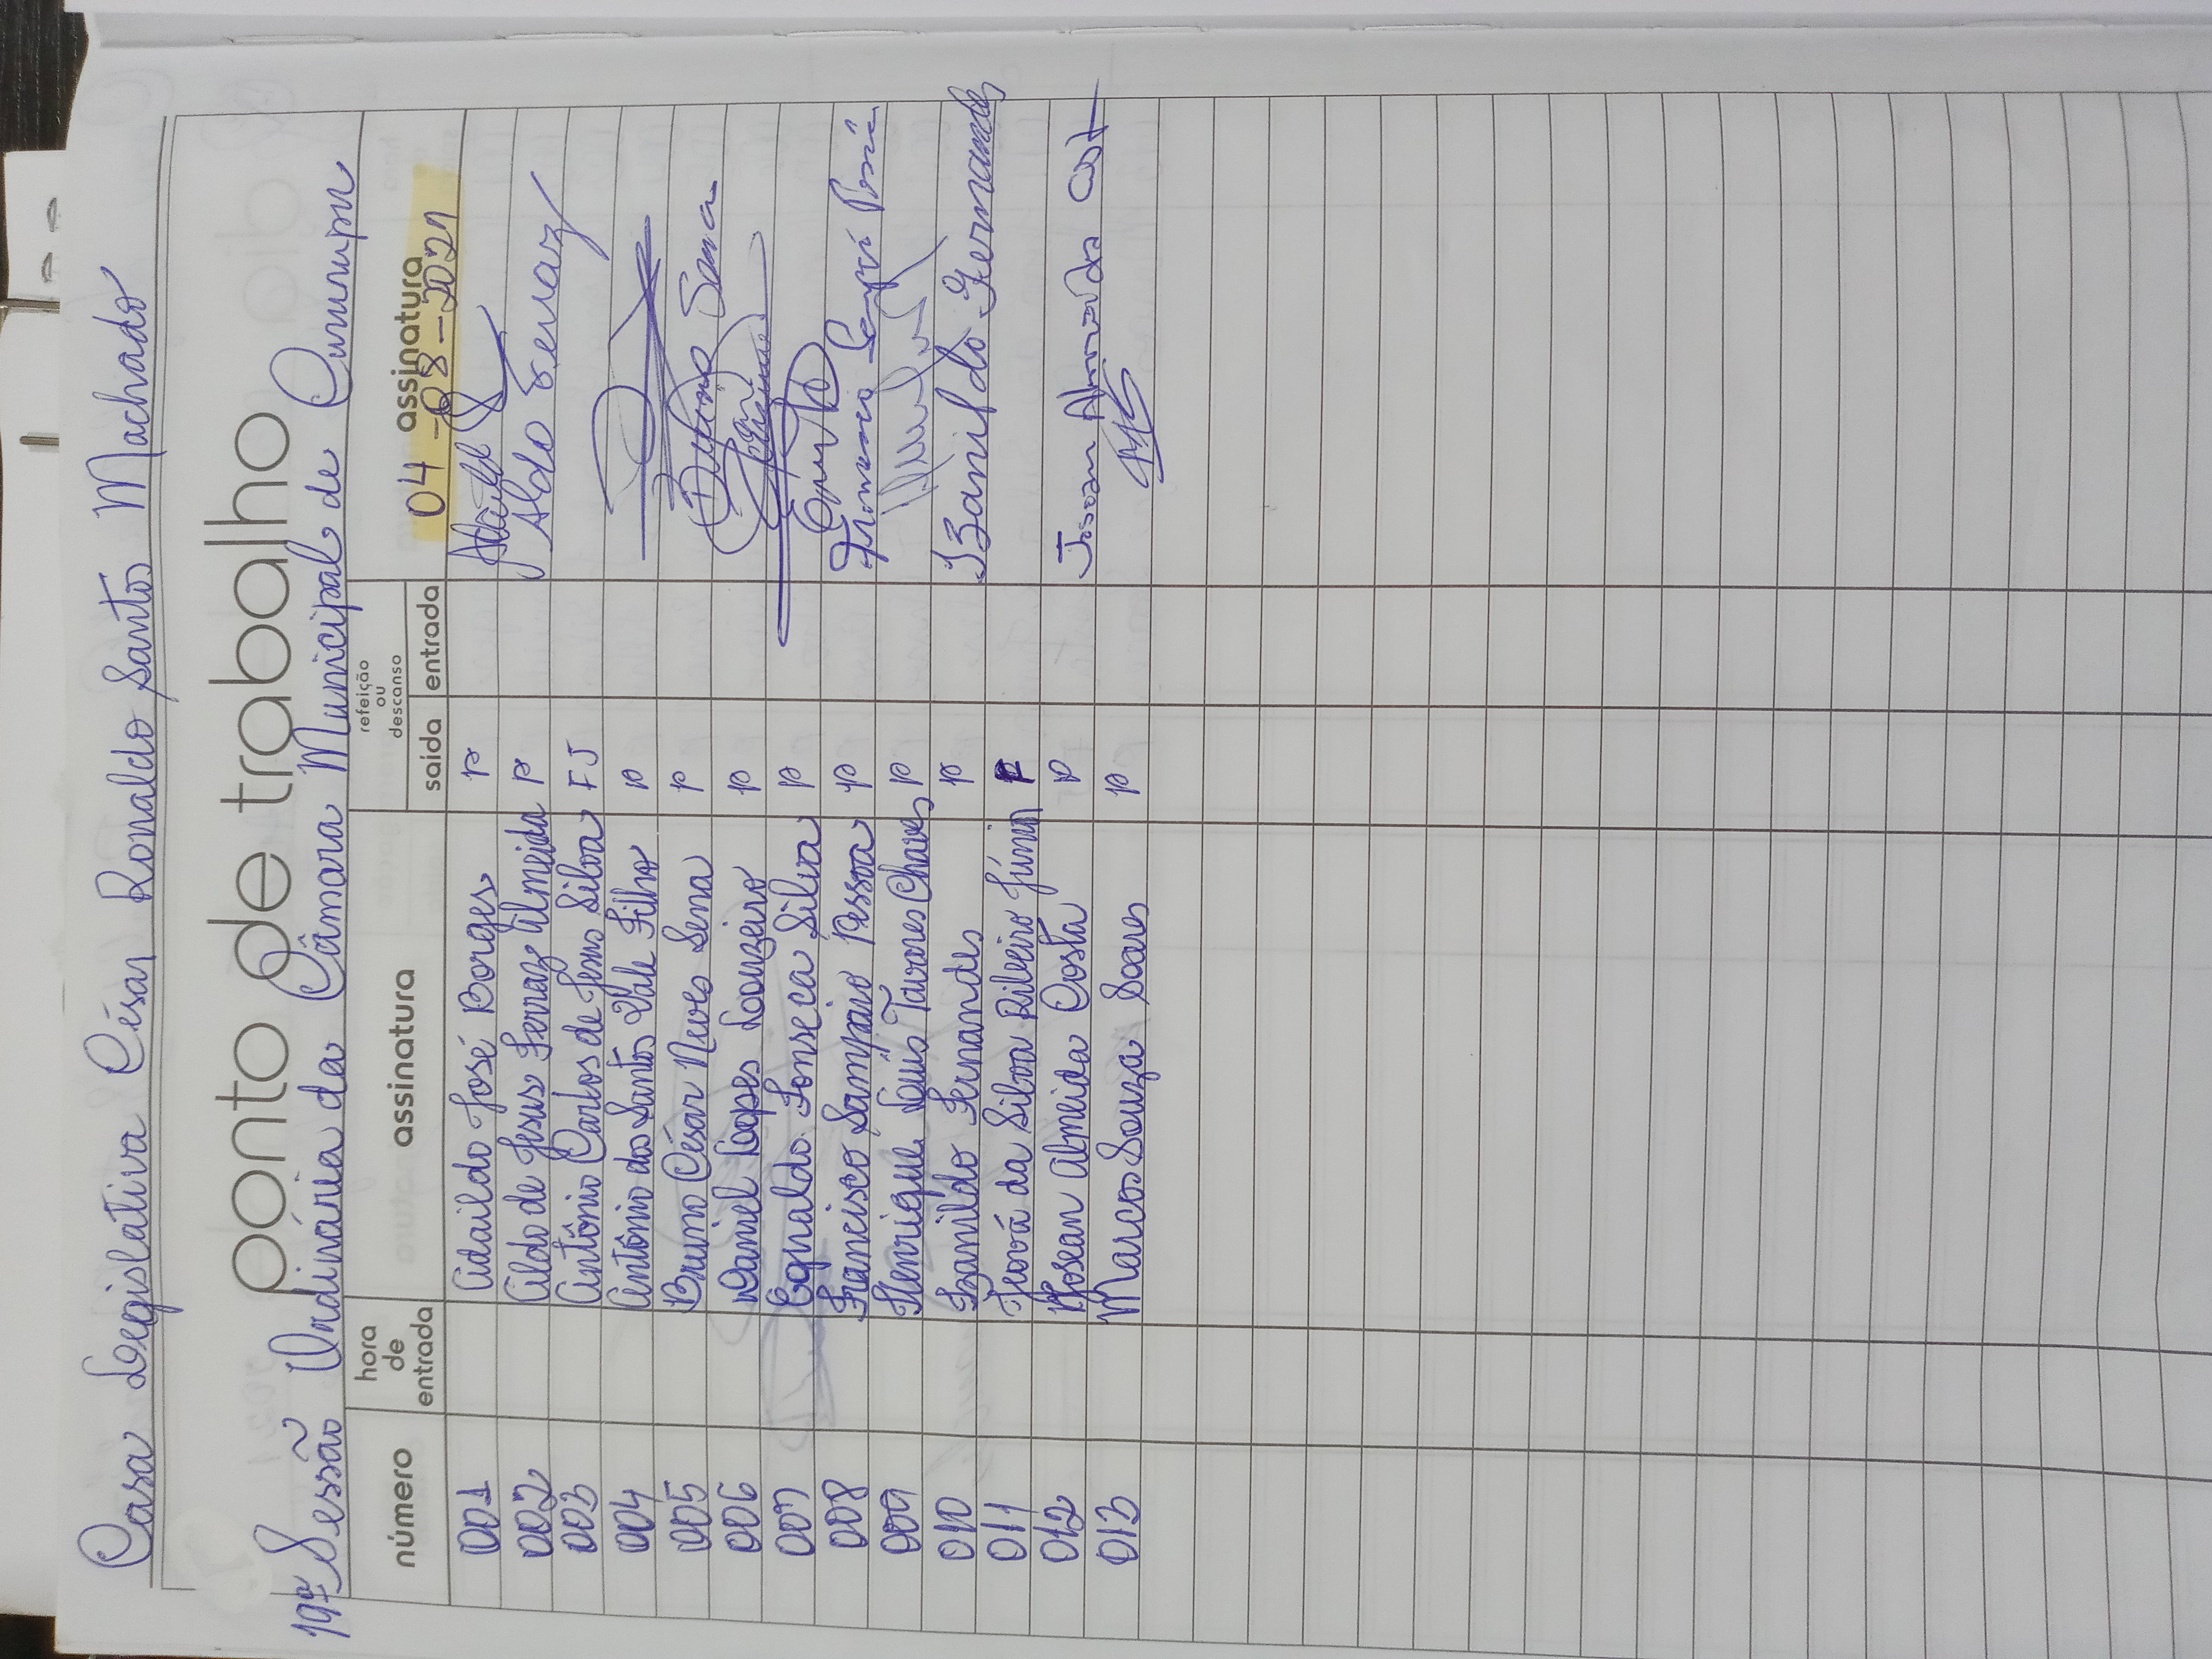 Casa Legislativa César Ronaldo Santos Machado
ponto de trabalho
19ª Sessão Ordinária da Câmara Municipal de Cururupu
número hora de entrada assinatura refeição ou descanso saída entrada assinatura
04-08-2021
001 Adaildo José Borges P Adaildo
002 Aldo de Jesus Ferraz Almeida P Aldo Ferraz
003 Antônio Carlos de Jesus Silva FJ
004 Antônio dos Santos Vale Filho P
005 Bruno César Neves Sena P Bruno Sena
006 Daniel Lopes Louzeiro P
007 Egnaldo Fonseca Silva P
008 Francisco Sampaio Pessoa P Francisco
009 Henrique Luís Tavares Chaves P
010 Izanildo Fernandes P Izanildo Fernandes
011 Jhová da Silva Ribeiro Júnior F
012 Josean Almeida Costa P Josean Almeida Cost
013 Marcos Souza Soares P